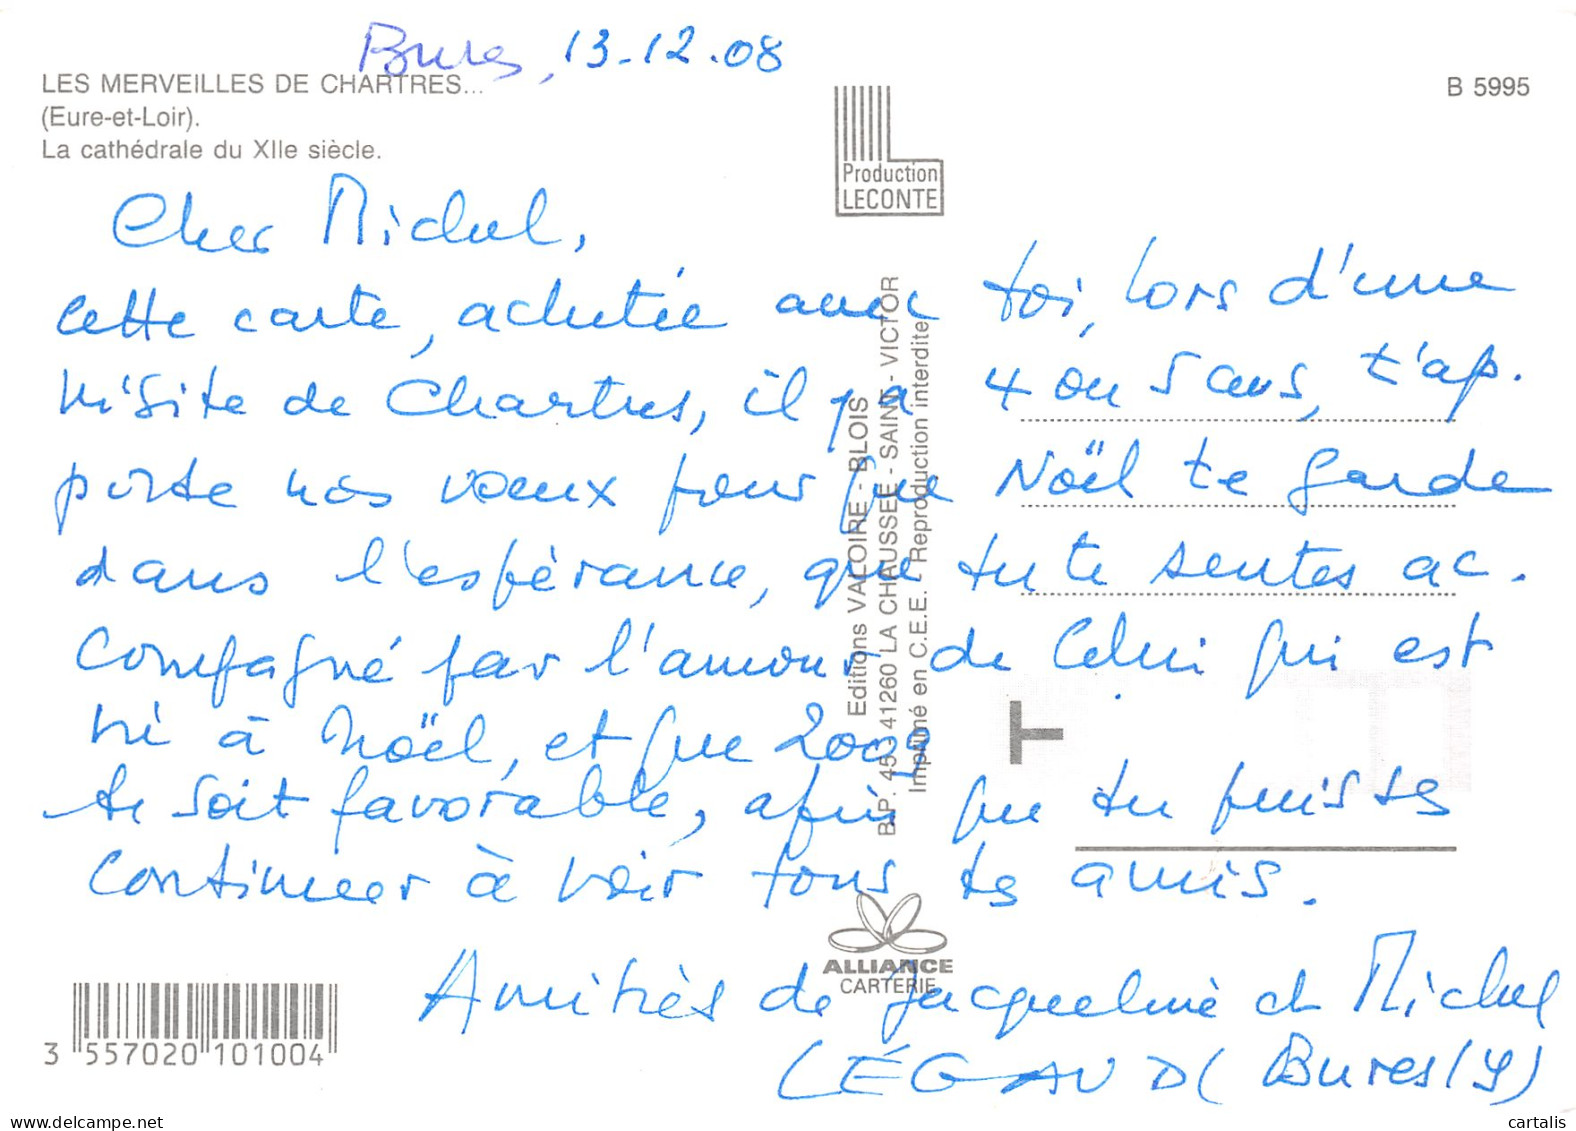 Bures, 13-12.08
LES MERVEILLES DE CHARTRES...
(Eure-et-Loir).
La cathédrale du XIIe siècle.
B 5995
Production
LECONTE
Cher Michel,
cette carte, achetée avec toi, lors d'une
visite de Chartres, il y a 4 ou 5 ans, t'ap.
porte nos voeux pour que Noël te garde
dans l'espérance, que tu te sentes ac.
compagné par l'amour de Celui qui est
né à Noël, et que 2009
te soit favorable, afin que tu puisses
continuer à voir tous tes amis.
Amitiés de Jacqueline et Michel
LÉGAUD (Bures/Y)
Editions VALOIRE - BLOIS
B.P. 45 - 41260 LA CHAUSSEE - SAINT - VICTOR
Imprimé en C.E.E. Reproduction interdite
ALLIANCE
CARTERIE
3 557020 101004
delcampe.net
cartalis